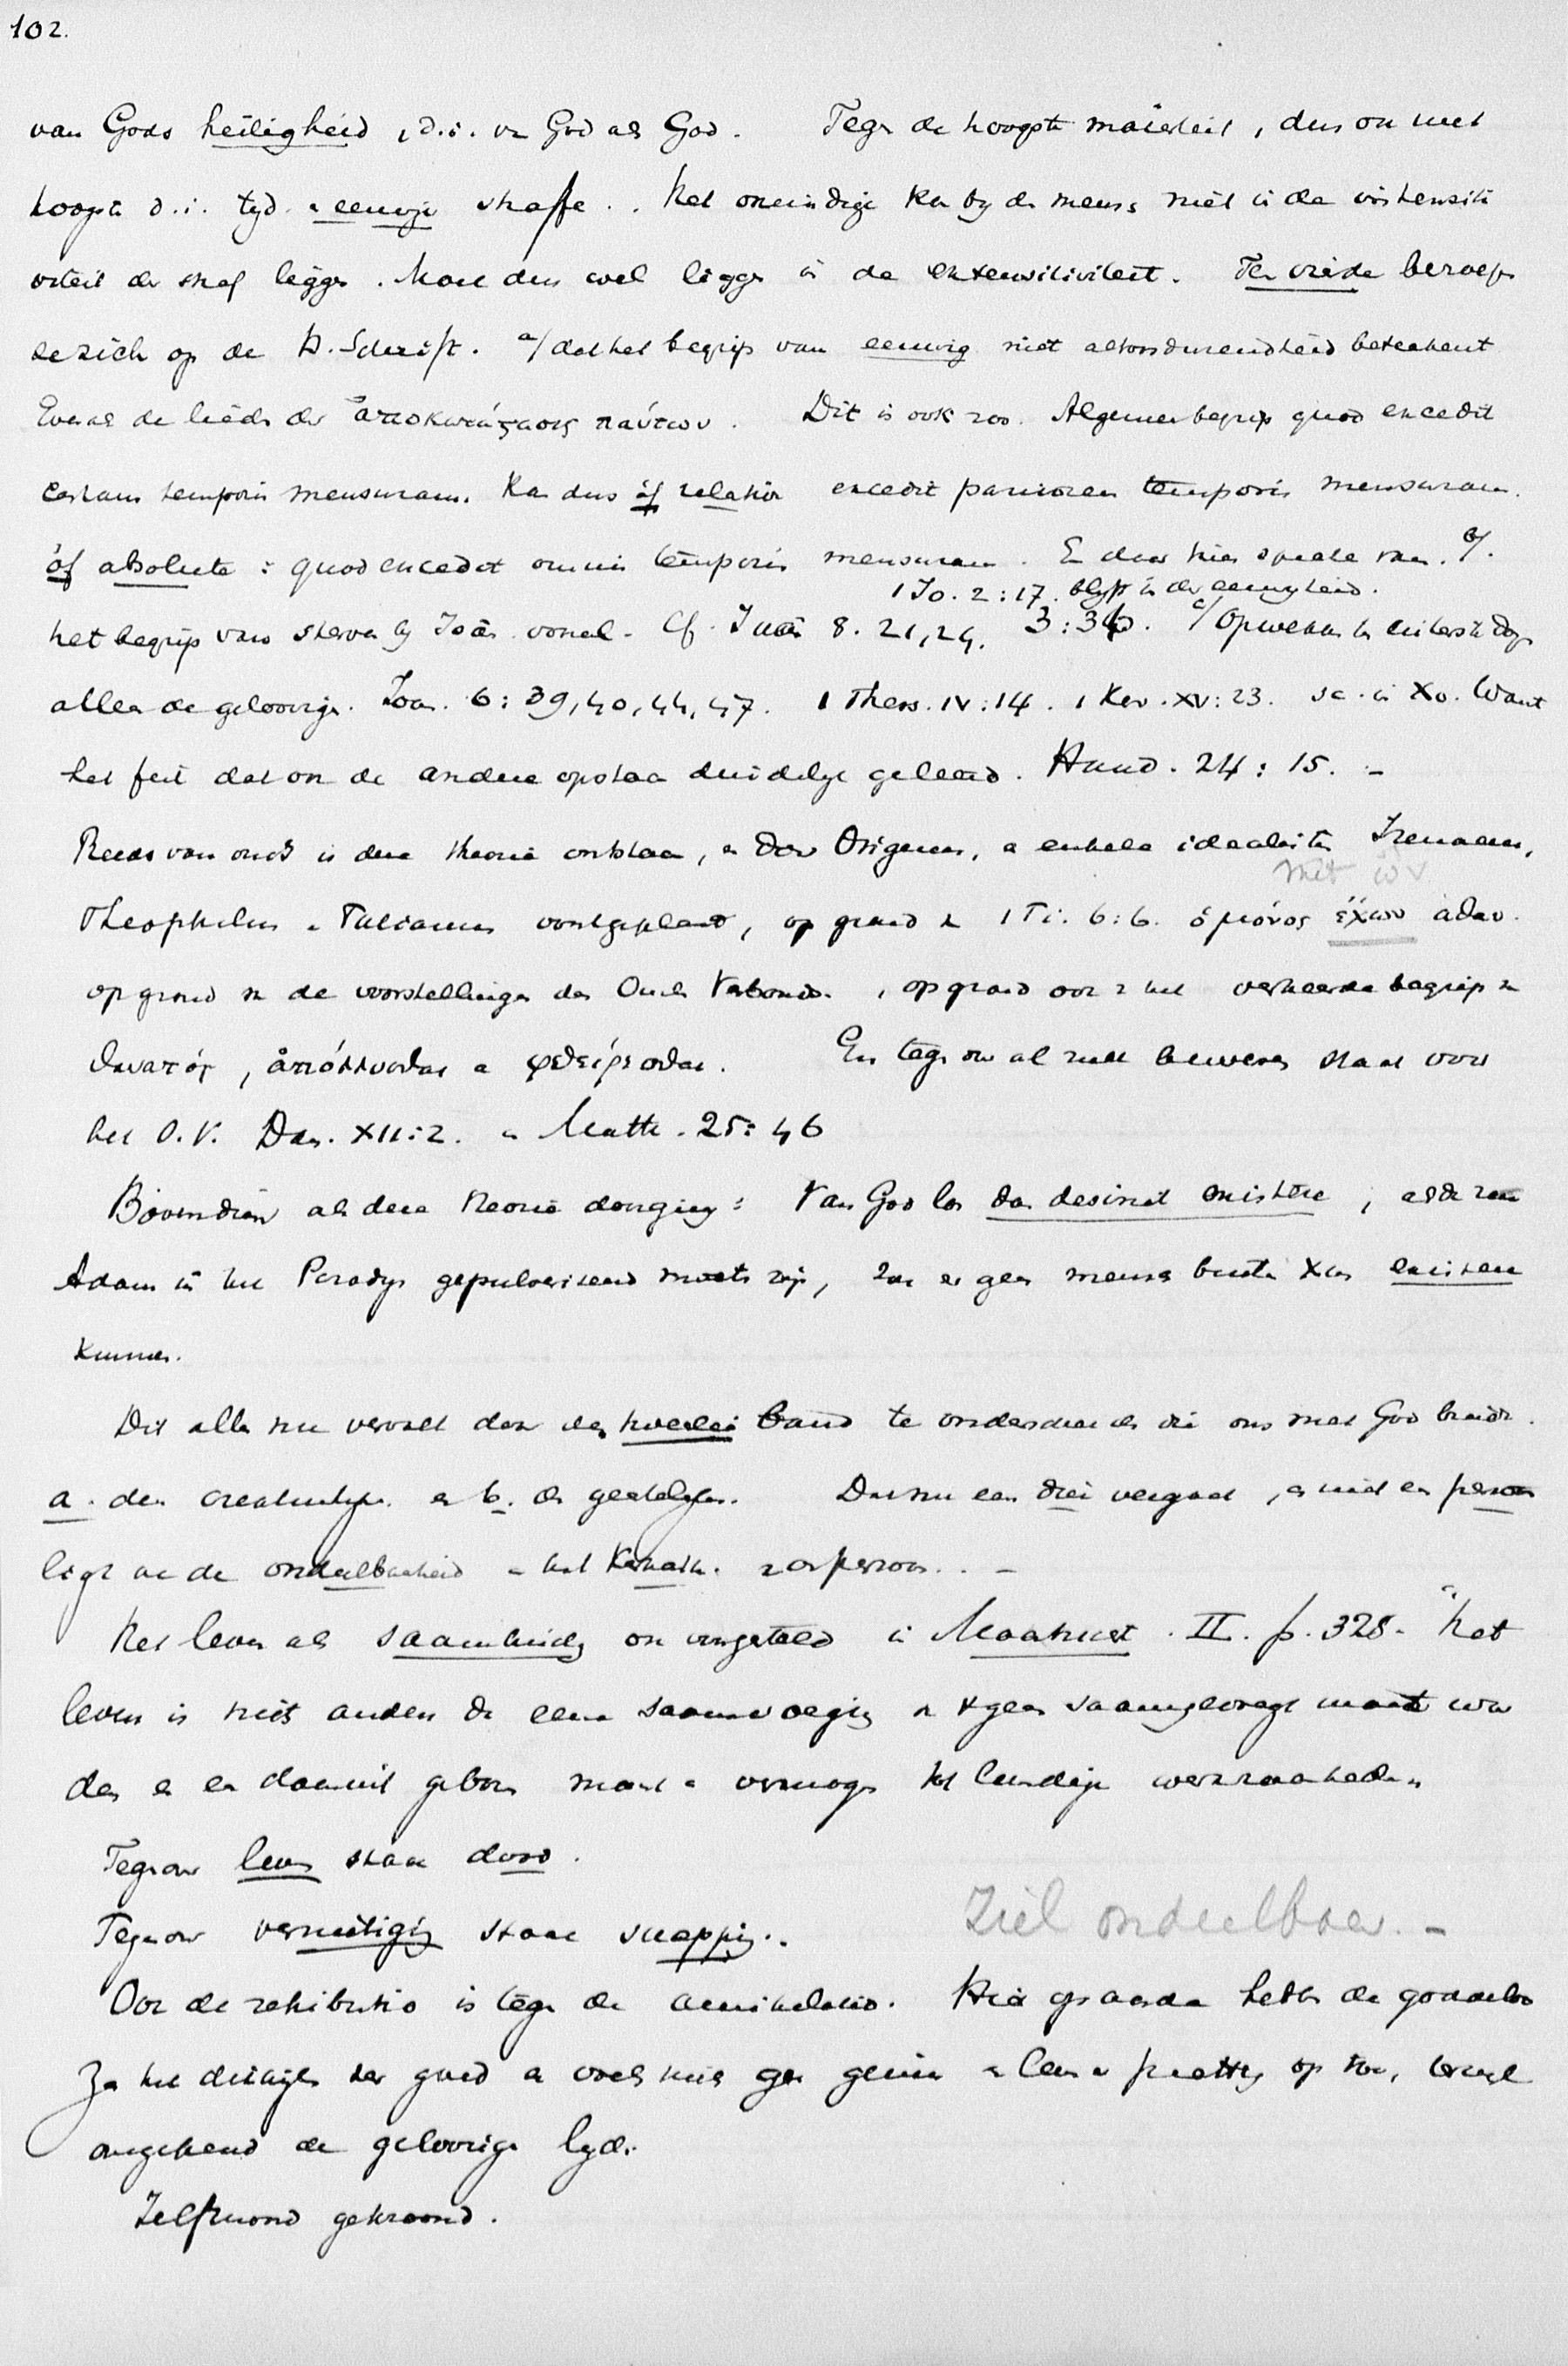 102.
van Gods heiligheid, d.i. vn God als God. Tegn de hoogste maiesteit, dus on met
hoogste d.i. tyd. eeuwige straffe.. Het oneindige kn by dn mens niet in de intensiti
viteit der straf liggn. Moet dus wel liggn in de extensitiviteit. Ten vierde beroepn
ze zich op de H. Schrift. a/ dat het begrip van eeuwig niet altoosdurendheid beteekent
Evenals de lieden der ἀποκατάςασις πάντων. Dit is ook zoo. Algemeen begrip quod excedit
certam temporis mensuram. Kan dus óf relatier excedit parvioren temporis mensuram.
óf absolute: quod excedit omnis temporis mensuram. En daar hier sprake van. b/.
1 Jo. 2:17. blyft in der eeuwigheid.
het begrip van sterven by Joan. vooral. Cf. Joan 8. 21, 24. 3:36. c/ Opwekken ten uitersten dage
alleen de geloovign. Joan. 6: 39, 40, 44, 47. 1 Thess. IV:14. 1 Kor. XV:23. sc. in Xo. Want
het feit dat on de andere opstaan duidelyk geleerd. Hand. 24:15. –
Reeds van ouds is deze theorie ontstaan, en door Origenes, en enkele idealisten Irenaeus,
met ων
Theophilus en Tatianus voortgeplant, op grond v 1 Ti. 6:6. ὁ μόνος ἔχων ἀθαν.
op grond vn de voorstellingn des Ouden Verbonds., op grond ook v het verkeerde begrip vn
θανατός, ἀπόλλυσθαι en φθείρεσθαι. En tegnov al zulk beweren staat voor
het O.V. Dan. XII:2. en Matth. 25:46
Bovendien als deze theorie doorging: Van God los dan desinit existere, alsdn zou
Adam in het Paradys gepulveriseerd moeten zyn, zou er geen mensch buiten Xus existeere
kunnen.
Dit alles nu vervalt door den tweeërlei band te onderscheiden die ons met God bindt.
a. den creatuurlyken en b. den geestelyken. Dat nu een dier vergaat, en niet een persoon
ligt in de ondeelbaarheid en het Karakt. v een persoon.. –
Het leven als saambinding on voorgesteld in Maastricht. II. p. 328. "Het
leven is niets anders dn eene saamvoeging v tgeen saamgevoegt moet wor
den en en daaruit geboren macht en vermogn tot leevendige werkzaamheden"
Tegnov leven staat dood.
Tegnov vernietiging staat schepping.. Ziel ondeelbaar. –
Ook de retributio is tegn de annihilatio. Hier op aarde hebben de goddeloo
zn het dikwyls zeer goed en voelt niet gn genie en leven prettig op toe, terwyl
omgekeerd de geloovign lyden.
Zelfmoord gekroond.